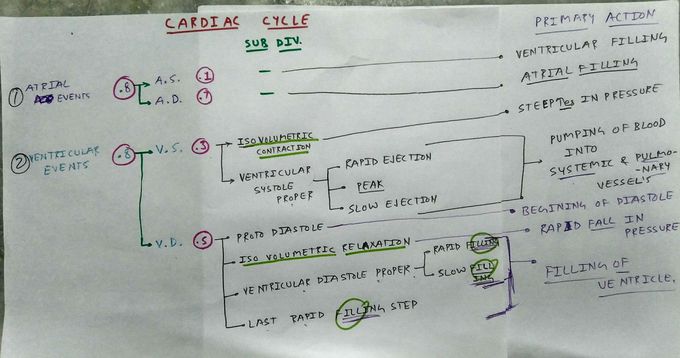 CARDIAC CYCLE
PRIMARY ACTION
SUB DIV.
1 ATRIAL EVENTS .8
A.S. .1 – VENTRICULAR FILLING
A.D. .7 – ATRIAL FILLING
2 VENTRICULAR EVENTS .8
V.S. .3
ISOVOLUMETRIC CONTRACTION
STEEP ↑es IN PRESSURE
VENTRICULAR SYSTOLE PROPER
RAPID EJECTION
PEAK
SLOW EJECTION
PUMPING OF BLOOD
INTO
SYSTEMIC & PULMO-
-NARY
VESSEL'S
V.D. .5
PROTO DIASTOLE
BEGINING OF DIASTOLE
ISO VOLUMETRIC RELAXATION
RAPID FALL IN
PRESSURE
VENTRICULAR DIASTOLE PROPER
RAPID FILLING
SLOW FILL
ING
LAST RAPID FILLING STEP
FILLING OF
VENTRICLE.